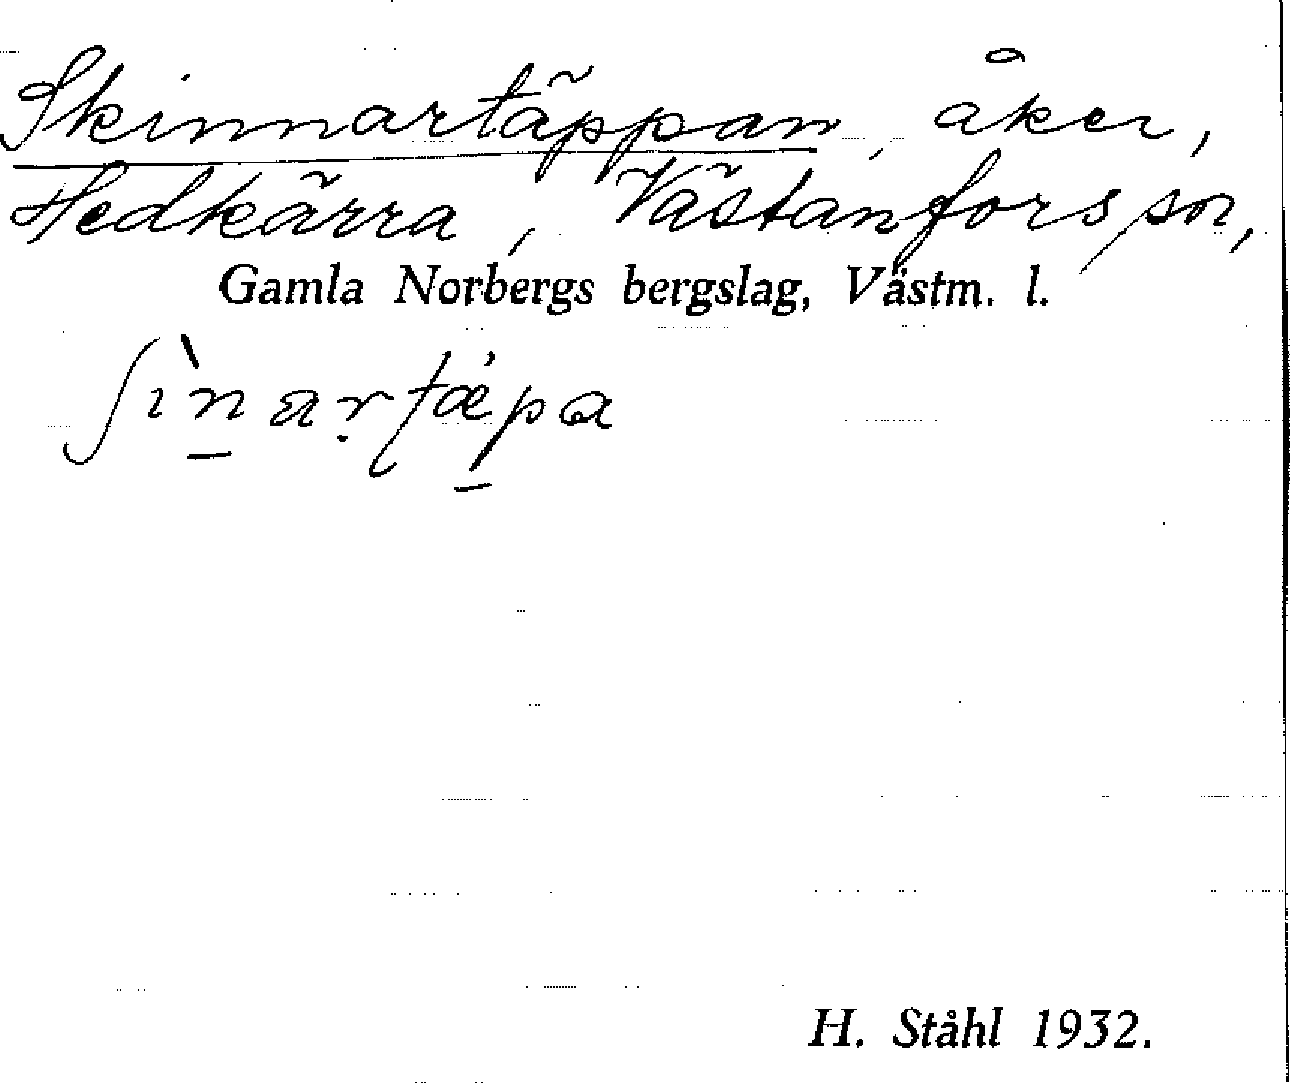 Skinnartäppan, åker,
Hedkärra, Västanfors sn,
Gamla Norbergs bergslag, Västm. l.
ʃìn̲aṛtæ̀p̲a
H. Ståhl 1932.